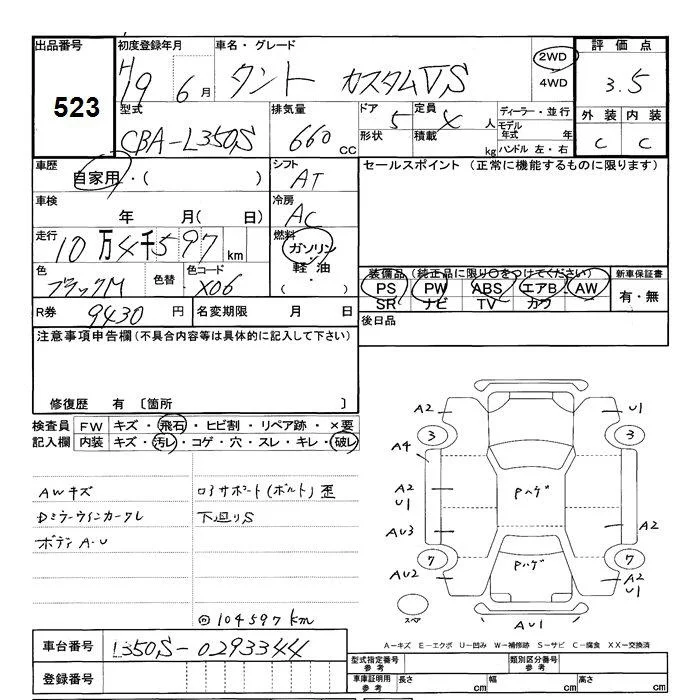 出品番号 初度登録年月 車名・グレード 2WD 評価点
523 H19 6月 タント カスタムVS 4WD 3.5
型式 排気量 ドア 5 定員 4 人 ディーラー・並行 外装 内装
CBA-L350S 660 CC 形状 積載 kg モデル年式 年 C C
ハンドル 左・右
車歴 自家用・( ) シフト AT セールスポイント (正常に機能するものに限ります)
車検 年 月( 日) 冷房 AC
走行 10万4千597km 燃料 ガソリン・軽油・( )
色 ブラックM 色替 色コード X06 装備品(純正品に限り○をつけてください) 新車保証書
PS PW ABS エアB AW 有・無
SR ナビ TV カワ
R券 9430 円 名変期限 月 日 後日品
注意事項申告欄(不具合内容等は具体的に記入して下さい)
修復歴 有 〔箇所 〕
検査員 FW キズ・飛石・ヒビ割・リペア跡・×要
記入欄 内装 キズ・汚レ・コゲ・穴・スレ・キレ・破レ
AWキズ ロアサポート(ボルト)歪
Dミラーウインカーワレ 下廻りS
ボディA・U
104597km
A2 U1
3 3
A4
A2 U1 Pハゲ
AU3 A2
7 Pハゲ 7
AU2 A2 U1
スペア AU1
A−キズ E−エクボ U−凹み W−補修跡 S−サビ C−腐食 XX−交換済
車台番号 L350S-0293344 型式指定番号 参考 類別区分番号 参考
登録番号 車庫証明用 参考 長さ cm 幅 cm 高さ cm